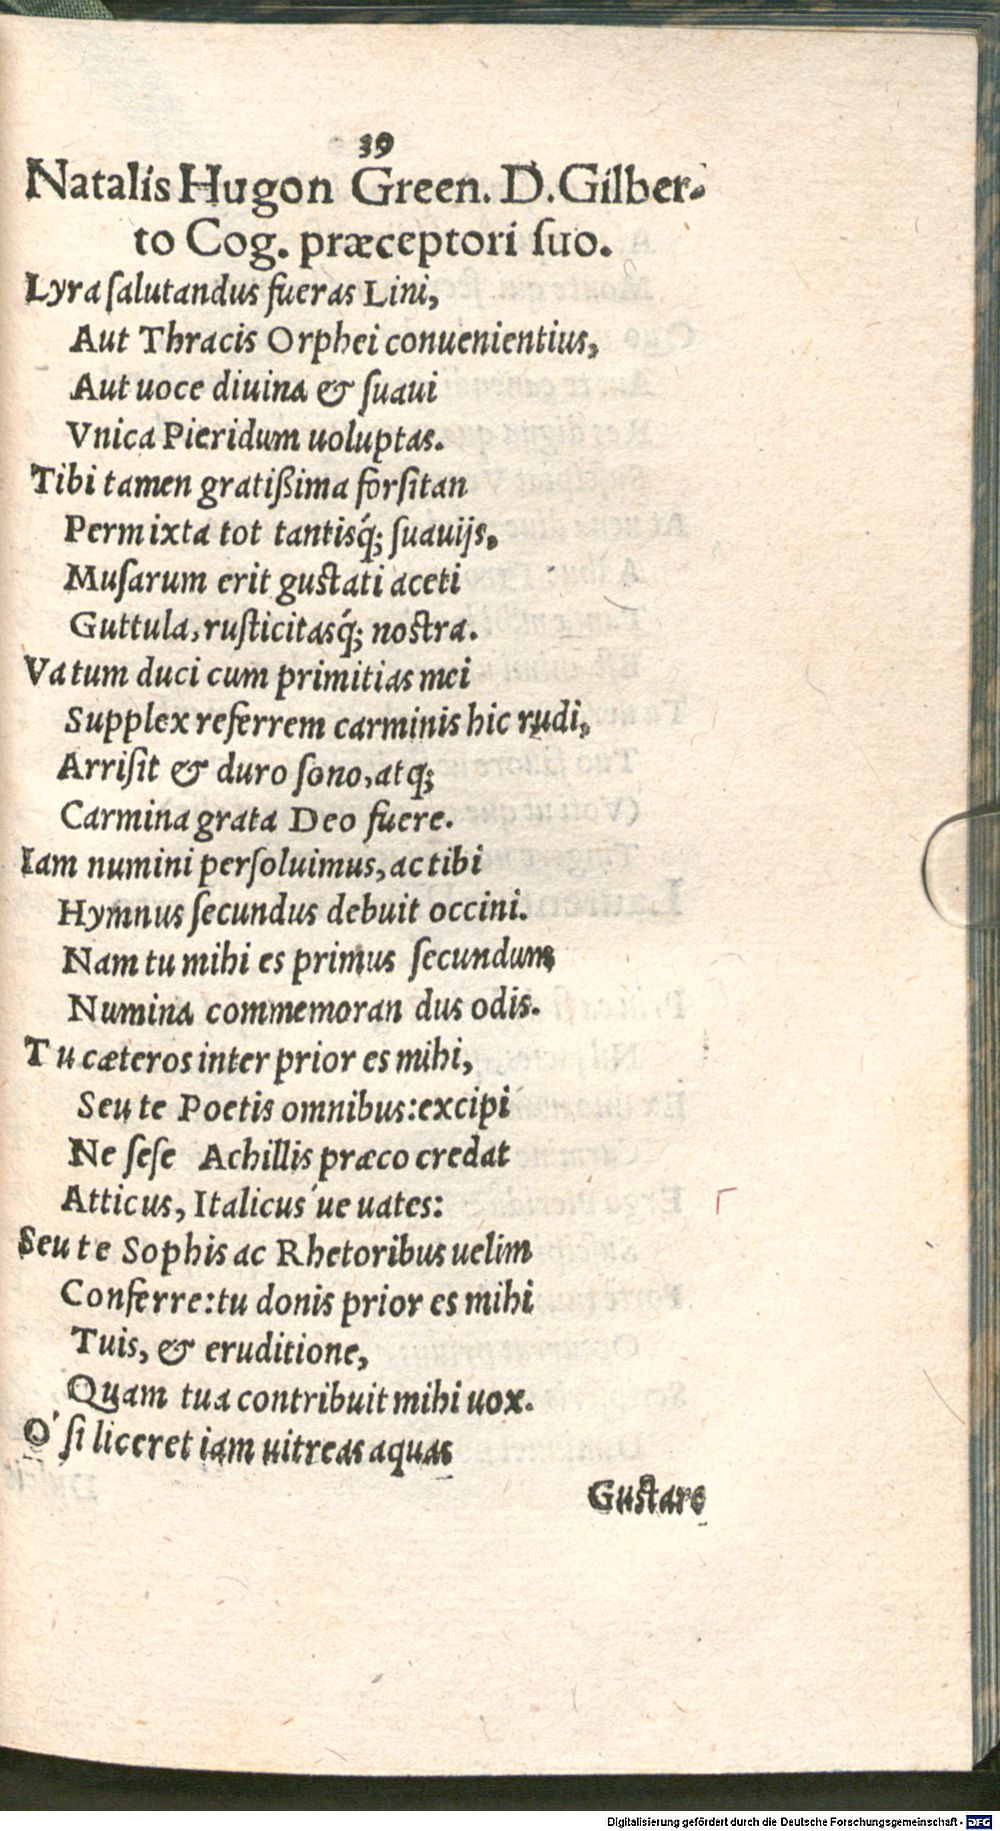 39
Natalis Hugon Green. D. Gilber-
to Cog. præceptori ſuo.
Lyra ſalutandus fueras Lini,
Aut Thracis Orphei conuenientius,
Aut uoce diuina & ſuaui
Vnica Pieridum uoluptas.
Tibi tamen gratißima forſitan
Permixta tot tantisq́; ſuauijs,
Muſarum erit guſtati aceti
Guttula, ruſticitasq́; noſtra.
Vatum duci cum primitias mei
Supplex referrem carminis hic rudi,
Arriſit & duro ſono, atq;
Carmina grata Deo fuere.
Iam numini perſoluimus, ac tibi
Hymnus ſecundus debuit occini.
Nam tu mihi es primus ſecundum
Numina commemoran dus odis.
Tu cæteros inter prior es mihi,
Seu te Poetis omnibus: excipi
Ne ſeſe Achillis præco credat
Atticus, Italicus ́ue uates:
Seu te Sophis ac Rhetoribus uelim
Conferre: tu donis prior es mihi
Tuis, & eruditione,
Quam tua contribuit mihi uox.
O' ſi liceret iam uitreas aquas
Guſtare
Digitalisierung gefördert durch die Deutsche Forschungsgemeinschaft - DFG